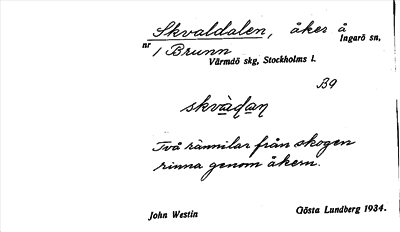 Skvaldalen, åker å
Ingarö sn,
nr
1 Brunn
Värmdö skg, Stockholms l.
B9
skvàdaɳ
Två rännilar från skogen
rinna genom åkern.
John Westin
Gösta Lundberg 1934.